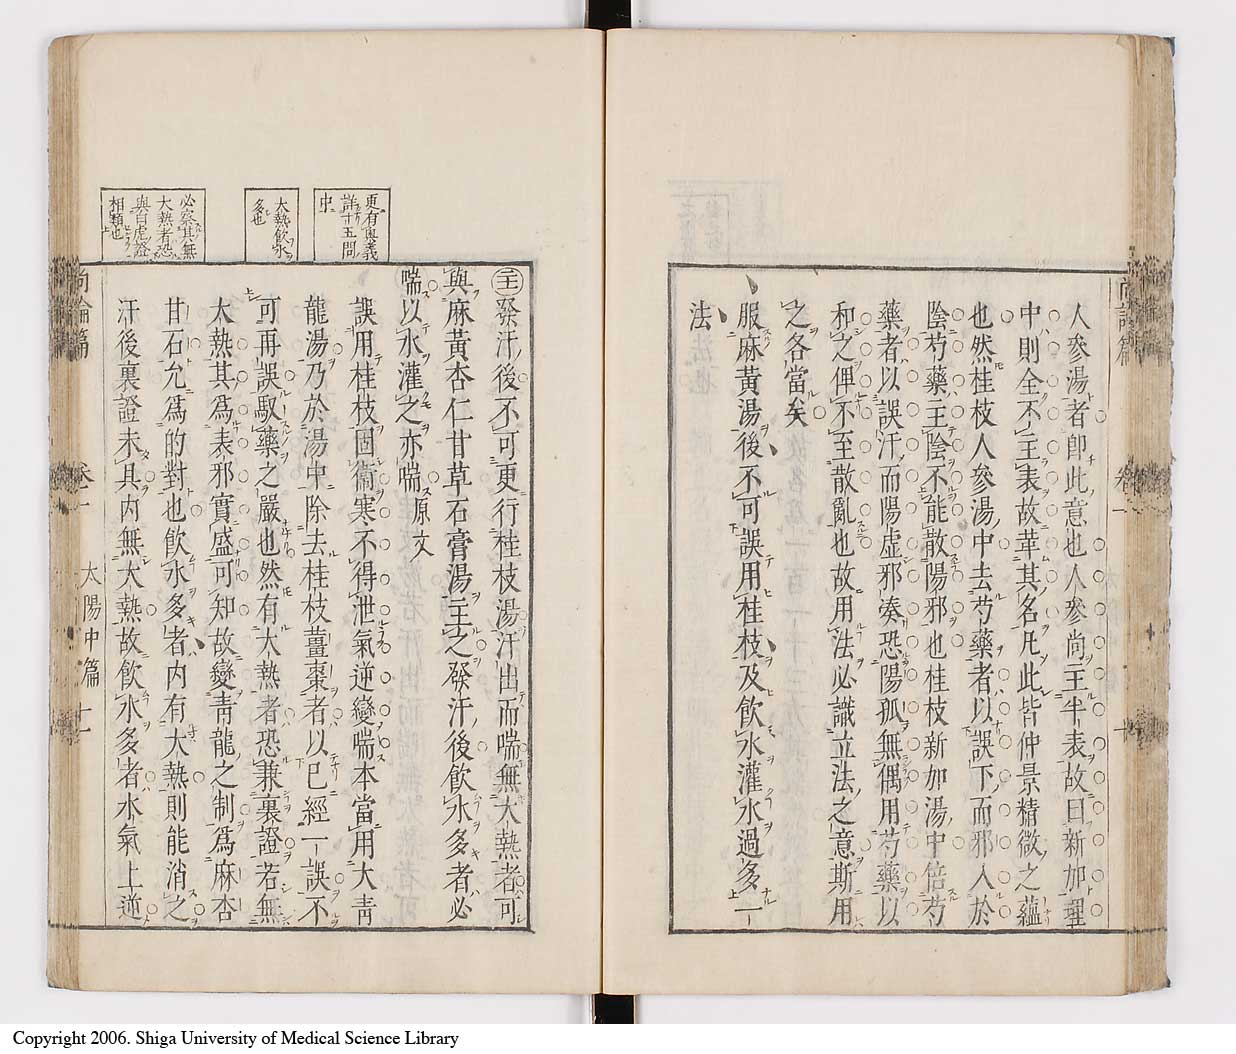 人參湯者卽此意也人參尚主半表故曰新加理
中則全不主表故革其名凡此皆仲景精微之蘊
也然桂枝人參湯中去芍藥者以誤下而邪入於
陰芍藥主陰不能散陽邪也桂枝新加湯中倍芍
藥者以誤汗而陽虛邪湊恐陽孤無偶用芍藥以
和之俾不至散亂也故用法必識立法之意斯用
之各當矣
服麻黃湯後不可誤用桂枝及飲水灌水過多一
法
更有奧義
詳廿五問
中
大熱飲水
多也
必察其無
大熱者恐
與白虎證
相類也
發汗後不可更行桂枝湯汗出而喘無大熱者可
與麻黃杏仁甘草石膏湯主之發汗後飲水多者必
喘以水灌之亦喘原文
誤用桂枝固衞寒不得泄氣逆變喘本當用大青
龍湯乃於湯中除去桂枝薑棗者以已經一誤不
可再誤馭藥之嚴也然有大熱者恐兼裏證若無
大熱其爲表邪實盛可知故變青龍之制爲麻杏
甘石允爲的對也飲水多者内有大熱則能消之
汗後裏證未具内無大熱故飲水多者水氣上逆
尚論篇 卷一 太陽中篇 十一
Copyright 2006. Shiga University of Medical Science Library